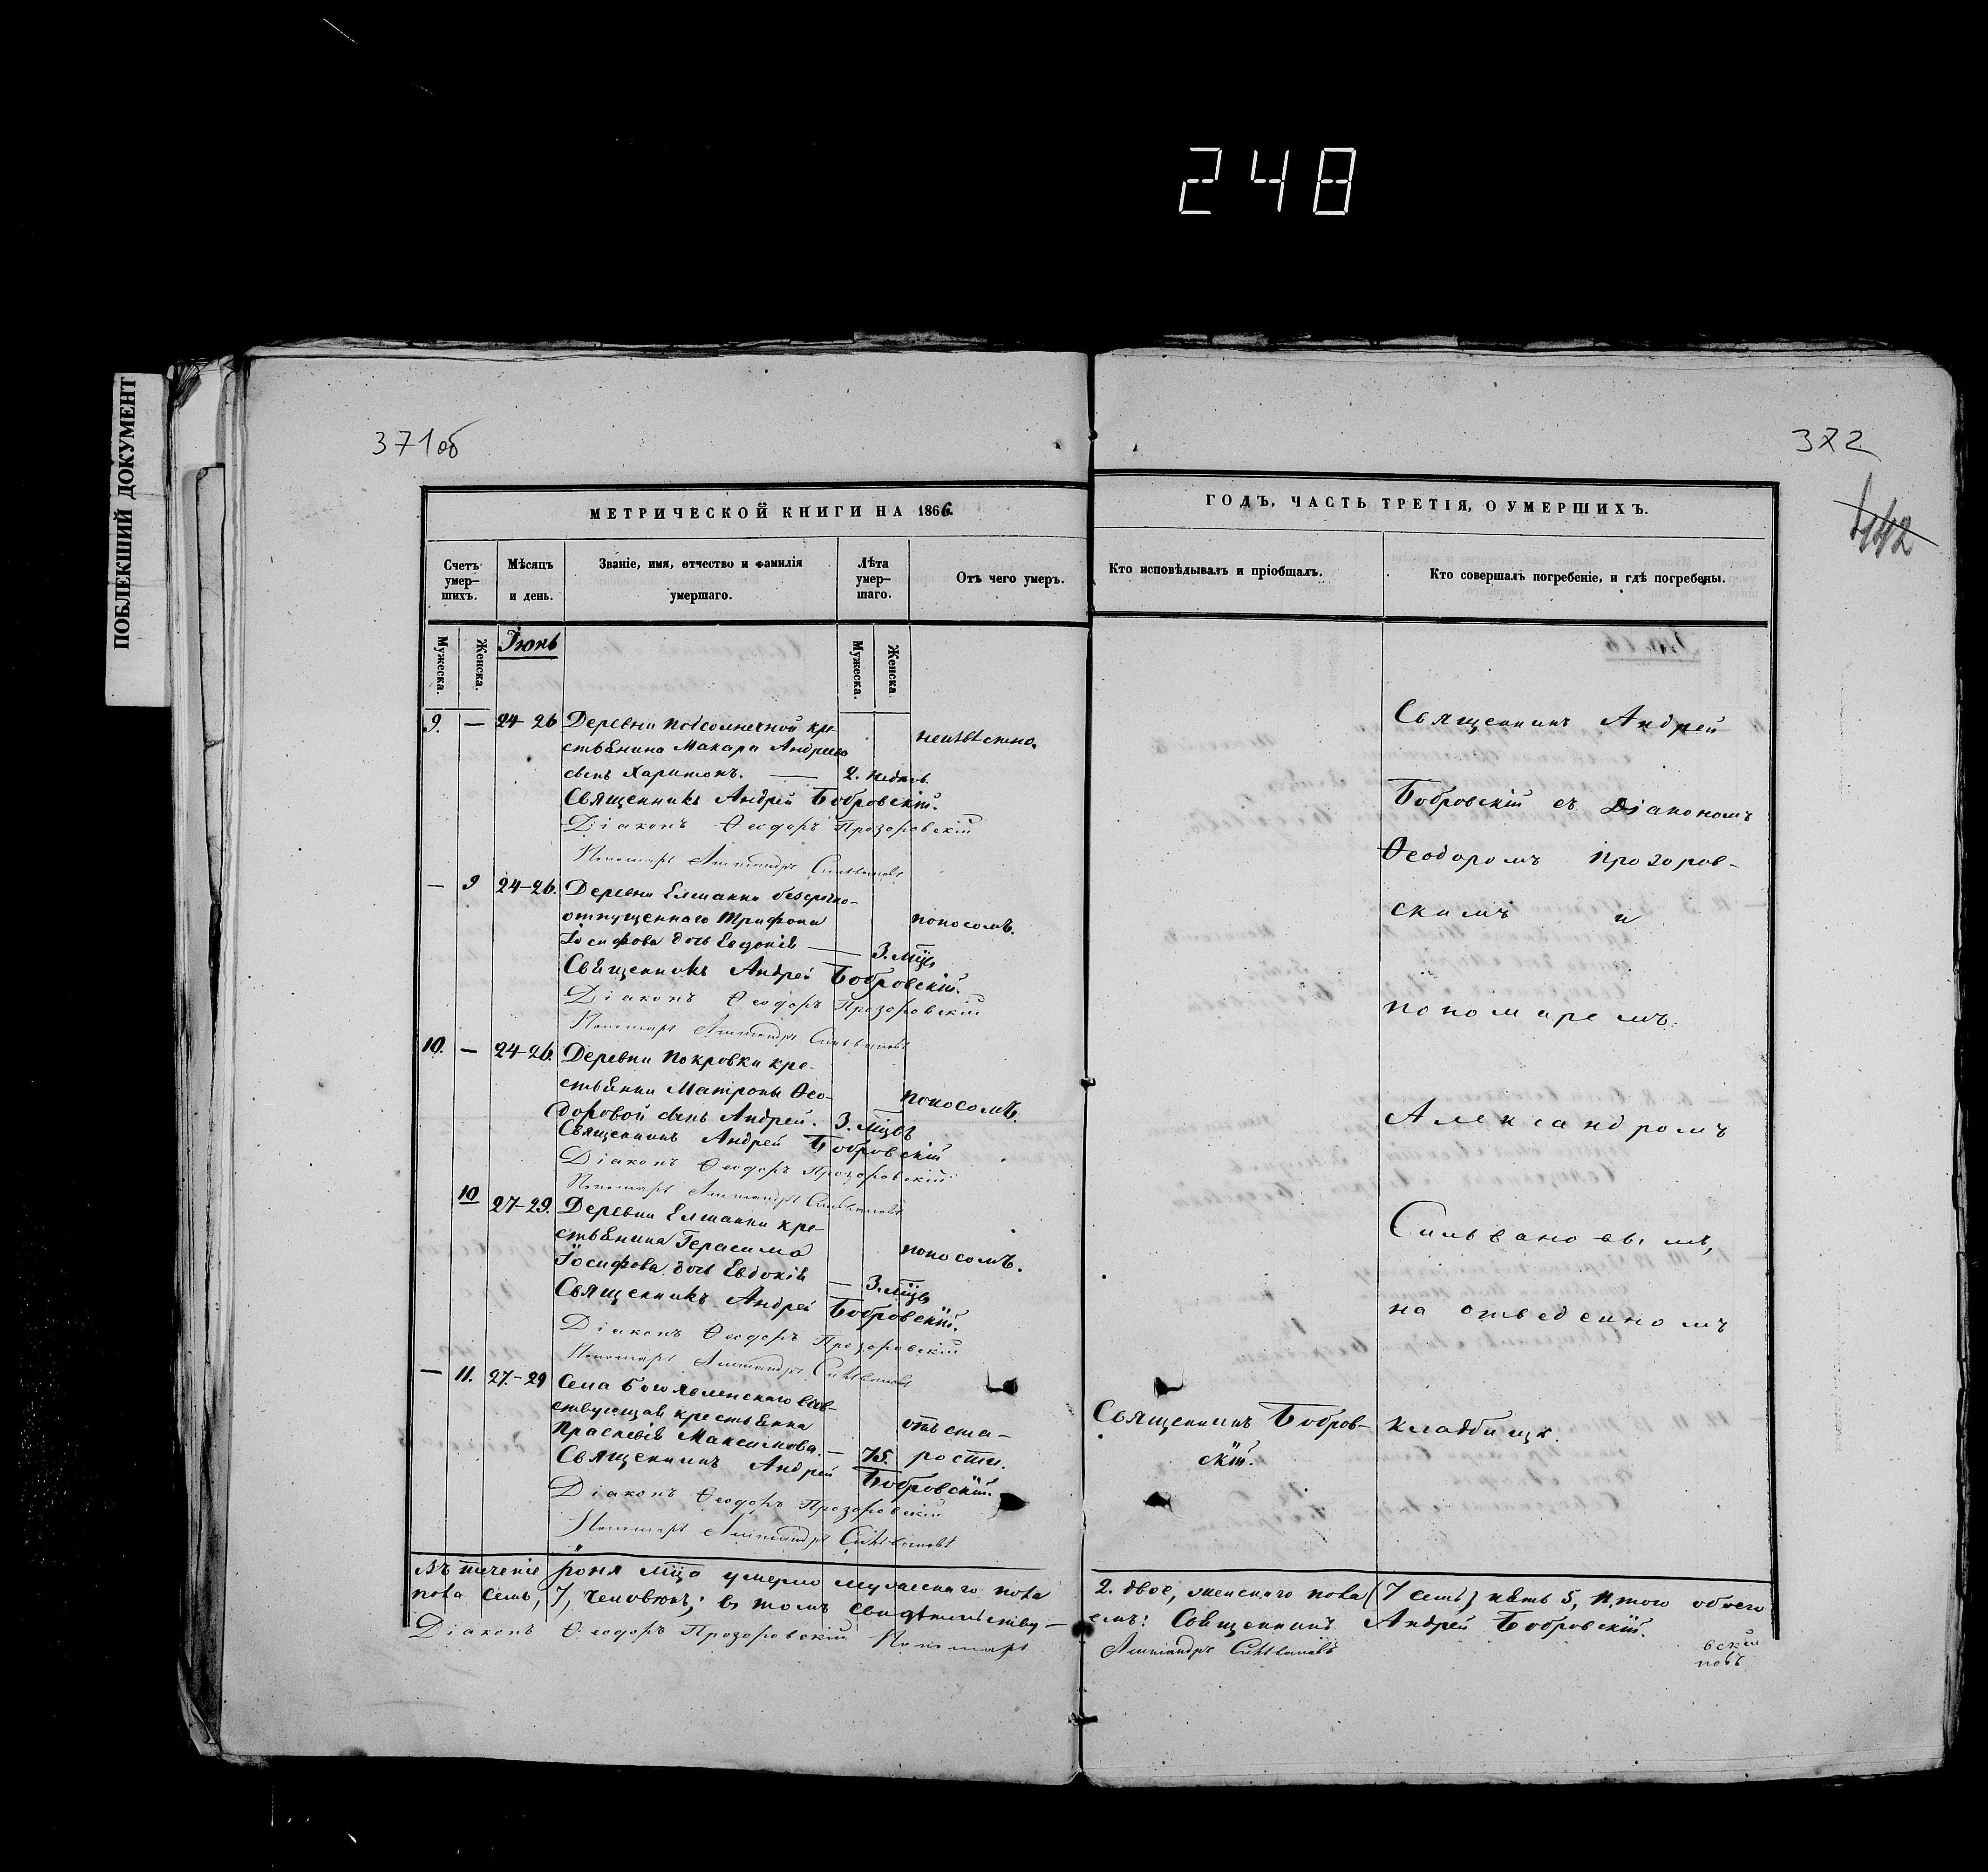 248
ПОБЛЕКШИЙ ДОКУМЕНТ
371об
372
442
МЕТРИЧЕСКОЙ КНИГИ НА 1866
ГОДЪ, ЧАСТЬ ТРЕТІЯ, О УМЕРШИХЪ.
Счетъ умер-шихъ.
Мѣсяцъ и день.
Званіе, имя, отчество и фамилія умершаго.
Лѣта умер-шаго.
Отъ чего умеръ.
Кто исповѣдывалъ и пріобщалъ.
Кто совершалъ погребеніе, и гдѣ погребены.
Мужеска.
Женска.
Іюнь
Мужеска.
Женска
9. — 24-26 Деревни Подсолнечной кре-
стьянина Макара Андреева неизвѣстно.
сынъ Харитонъ. — 2. недѣль.
Священникъ Андрей Бобровскій.
Діаконъ Ѳеодоръ Прозоровскій
Пономарь Александръ Сильвановъ
— 9 24-26. Деревни Елшанки безсрочно-
отпущеннаго Трифона поносомъ.
Іосифова дочь Евдокія — 3. мца
Священникъ Андрей Бобровскій.
Діаконъ Ѳеодоръ Прозоровскій
Пономарь Александръ Сильвановъ
10. — 24-26. Деревни Покровки кре-
стьянки Матроны Ѳео- поносомъ.
доровой сынъ Андрей. 3. мцъ
Священникъ Андрей Бобровскій
Діаконъ Ѳеодоръ Прозоровскій
Пономарь Александръ Сильвановъ
10 27-29. Деревни Елшанки кре-
стьянина Герасима поносомъ.
Іосифова дочь Евдокія — 3. мца
Священникъ Андрей Бобровскій.
Діаконъ Ѳеодоръ Прозоровскій
Пономарь Александръ Сильвановъ
— 11. 27.-29 Села Богоявленскаго вдов-
ствующая крестьянка отъ ста-
Праскевія Максимова. — 75. рости.
Священникъ Андрей Бобровскій.
Діаконъ Ѳеодоръ Прозоровскій
Пономарь Александръ Сильвановъ
Священникъ Бобров-
скій.
Священникъ Андрей
Бобровскій съ Діакономъ
Ѳеодоромъ Прозоров-
скимъ и
пономаремъ
Александромъ
Сильвановымъ,
на отведенномъ
кладбищѣ.
Въ теченіе іюня мца умерло мужескаго пола 2. двое, женскаго пола (7 семь) пять 5, Итого обоего
пола семь, 7, человѣкъ; въ томъ свидѣтельству-емъ: Священникъ Андрей Бобровскій.
Діаконъ Ѳеодоръ Прозоровскій Пономарь Александръ Сильвановъ
вскій
новъ